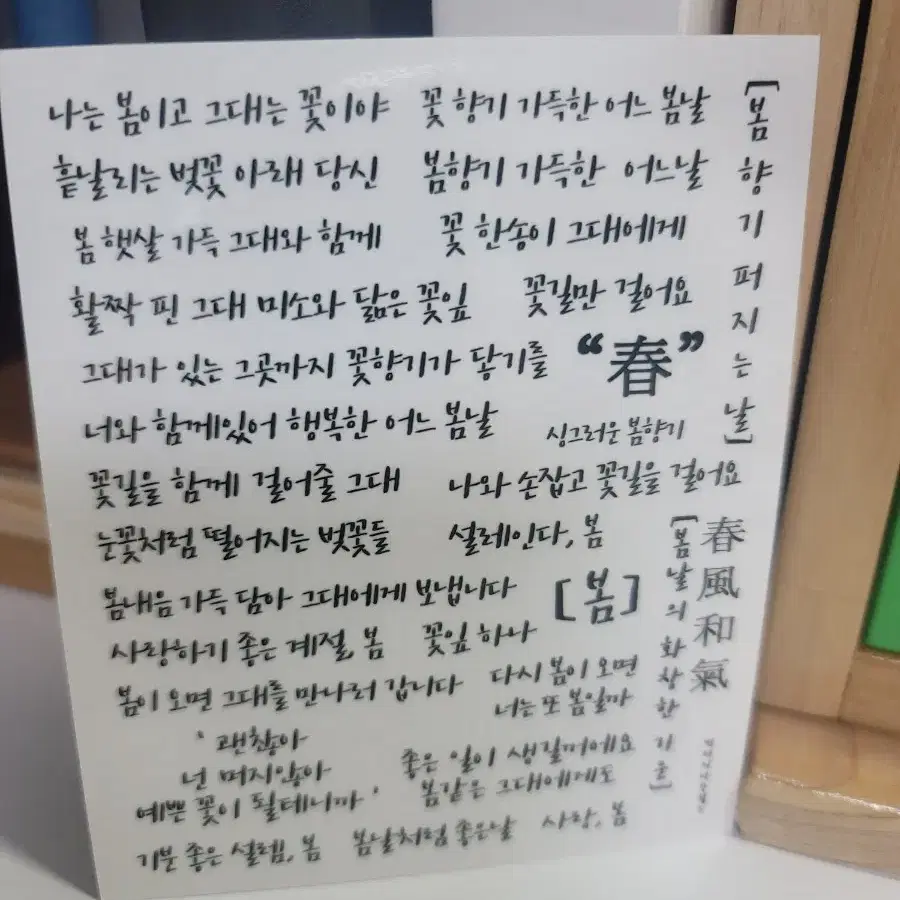 나는 봄이고 그대는 꽃이야
꽃 향기 가득한 어느 봄날
흩날리는 벚꽃 아래 당신
봄향기 가득한 어느날
봄 햇살 가득 그대와 함께
꽃 한송이 그대에게
활짝 핀 그대 미소와 닮은 꽃잎
꽃길만 걸어요
그대가 있는 그곳까지 꽃향기가 닿기를
“春”
너와 함께있어 행복한 어느 봄날
싱그러운 봄향기
꽃길을 함께 걸어줄 그대
나와 손잡고 꽃길을 걸어요
눈꽃처럼 떨어지는 벚꽃들
설레인다, 봄
봄내음 가득 담아 그대에게 보냅니다
[봄]
사랑하기 좋은 계절, 봄
꽃잎 하나
봄이 오면 그대를 만나러 갑니다
다시 봄이 오면
너는 또 봄일까
‘괜찮아
넌 머지않아
예쁜 꽃이 될테니까’
좋은 일이 생길꺼에요
봄같은 그대에게도
기분 좋은 설렘, 봄
봄날처럼 좋은날
사랑, 봄
[봄향기 퍼지는 날]
春風和氣
[봄날의 화창한 기운]